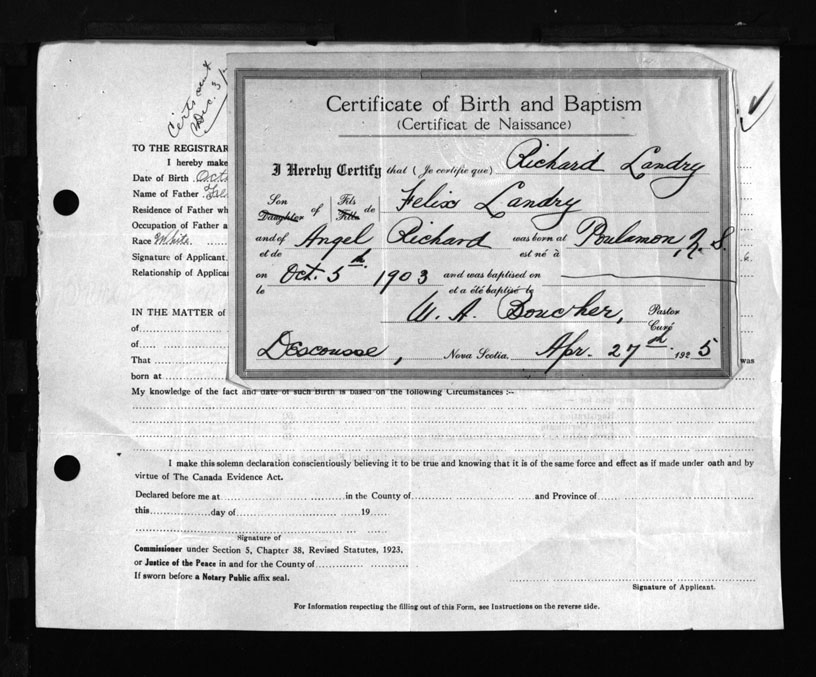 Certs sent
Dec. 3/
Certificate of Birth and Baptism
(Certificat de Naissance)
I Hereby Certify that (Je certifie que) Richard Landry
Son Daughter of Fils Fille de Felix Landry
and of et de Angel Richard was born at est né à Poulamon, N. S.
on le Oct. 5th 1903 and was baptised on et a été baptisé le
W. A. Boucher, Pastor Curé
Descousse, Nova Scotia, Apr. 27th 1925
TO THE REGISTRAR
I hereby make
Date of Birth Oct
Name of Father
Residence of Father wh
Occupation of Father a
Race White
Signature of Applicant
Relationship of Applica
IN THE MATTER of
of
of
That was
born at
My knowledge of the fact and date of such Birth is based on the following Circumstances :—
I make this solemn declaration conscientiously believing it to be true and knowing that it is of the same force and effect as if made under oath and by
virtue of The Canada Evidence Act.
Declared before me at in the County of and Province of
this day of 19
Signature of
Commissioner under Section 5, Chapter 38, Revised Statutes, 1923,
or Justice of the Peace in and for the County of
If sworn before a Notary Public affix seal.
Signature of Applicant.
For Information respecting the filling out of this Form, see Instructions on the reverse side.